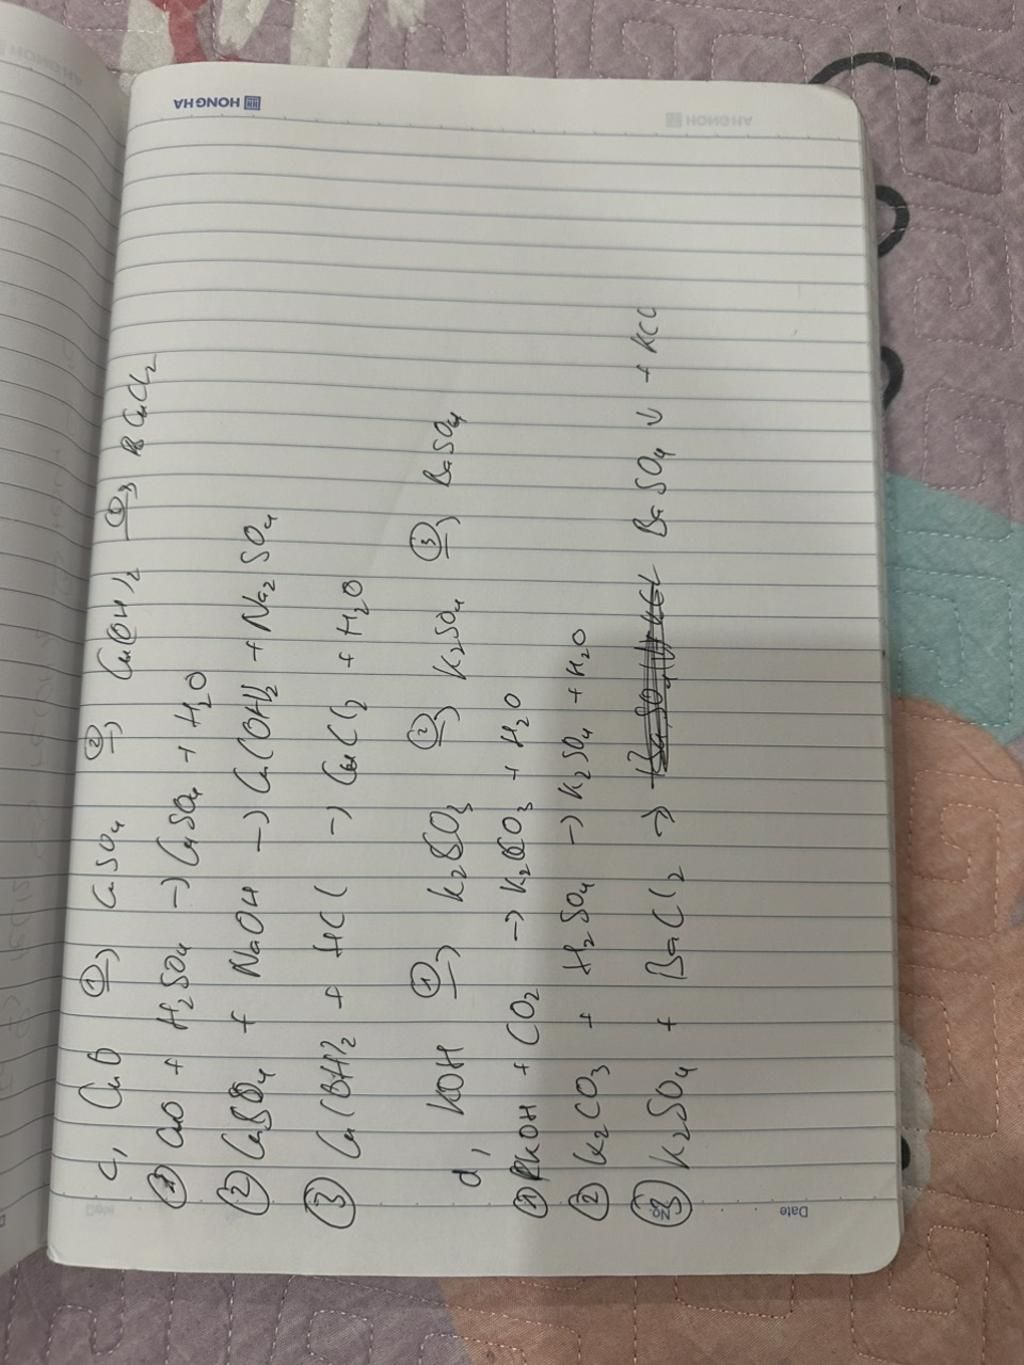 HONG HA
c, CuO ①→ CuSO4 ②→ Cu(OH)2 ③→ CuCl2
① CuO + H2SO4 → CuSO4 + H2O
② CuSO4 + NaOH → Cu(OH)2 + Na2SO4
③ Cu(OH)2 + HCl → CuCl2 + H2O
d, KOH ①→ K2CO3 ②→ K2SO4 ③→ BaSO4
① KOH + CO2 → K2CO3 + H2O
② K2CO3 + H2SO4 → K2SO4 + H2O
③ K2SO4 + BaCl2 → BaSO4 ↓ + KCl
No.
Date